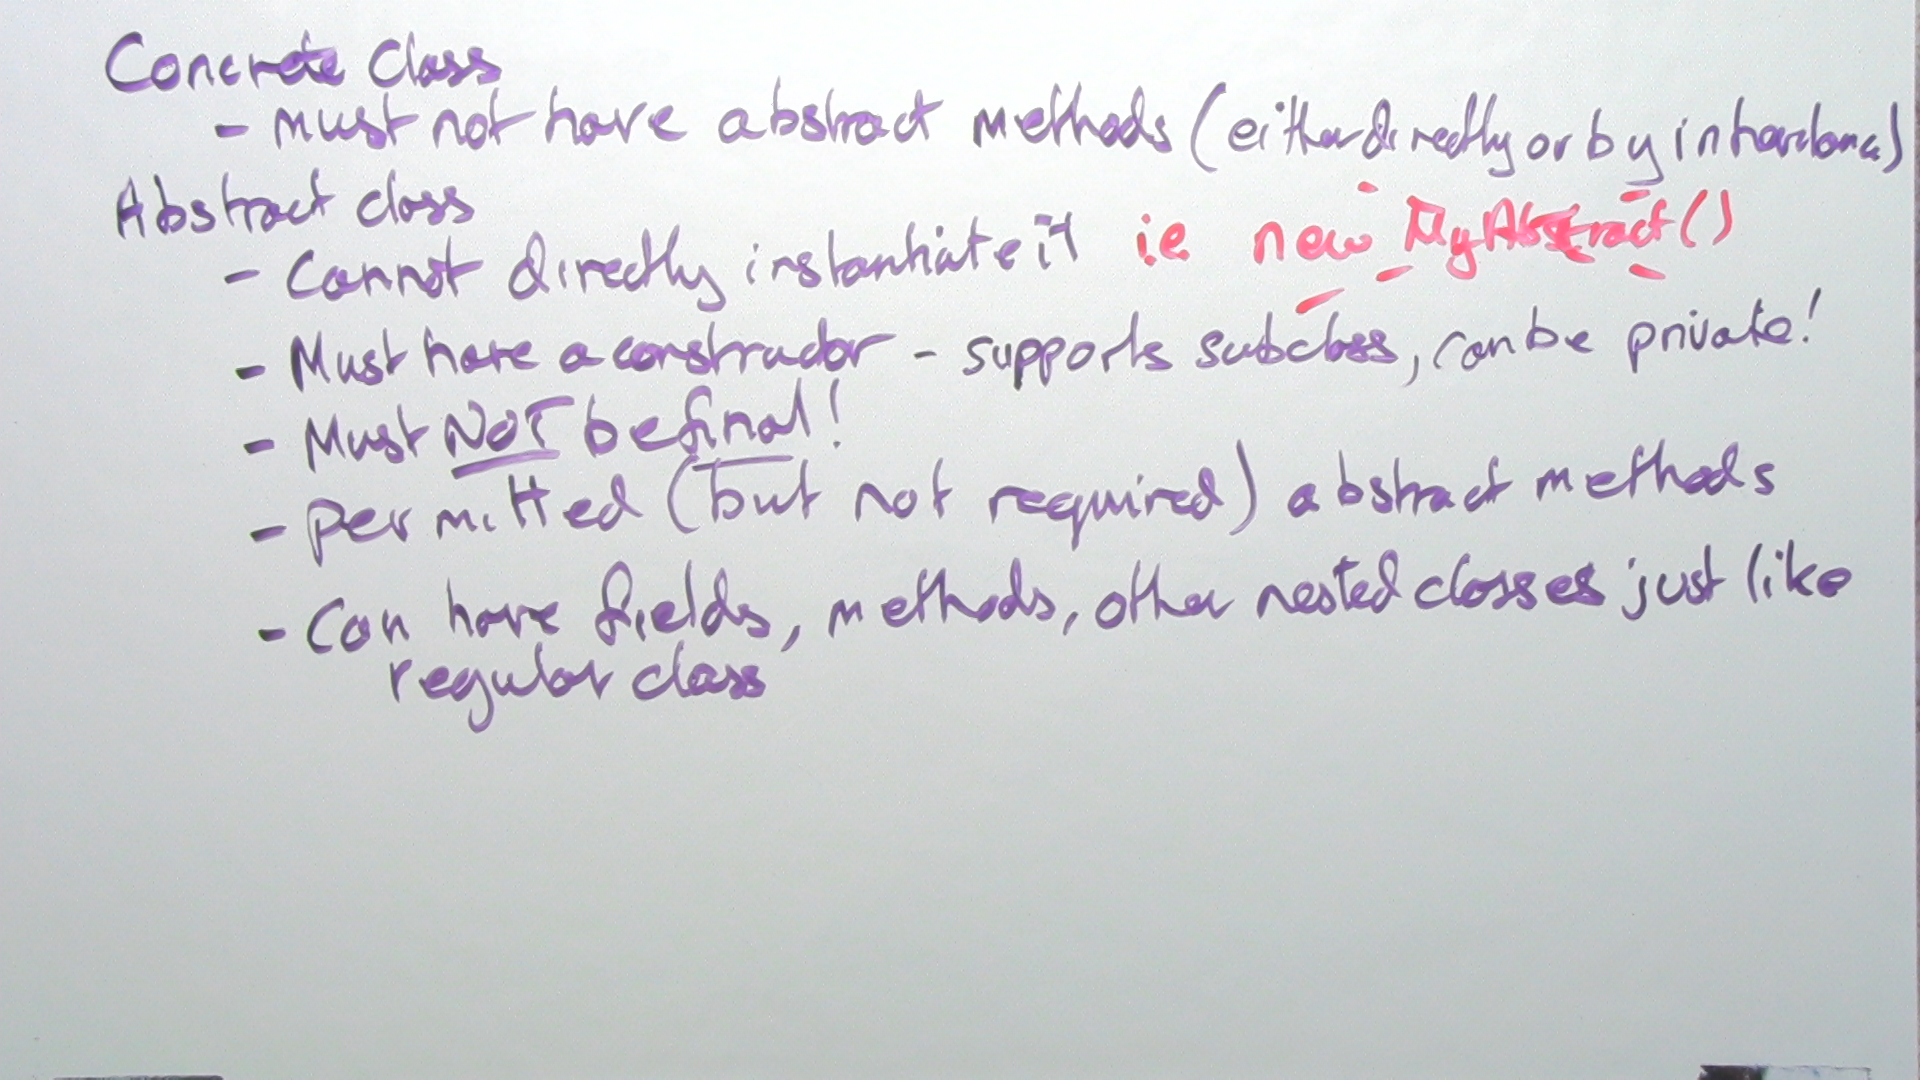 Concrete Class
- must not have abstract methods (either directly or by inheritance)
Abstract class
- Cannot directly instantiate it i.e new MyAbstract()
- Must have a constructor - supports subclass, can be private!
- Must NOT be final!
- permitted (but not required) abstract methods
- Can have fields, methods, other nested classes just like
regular class